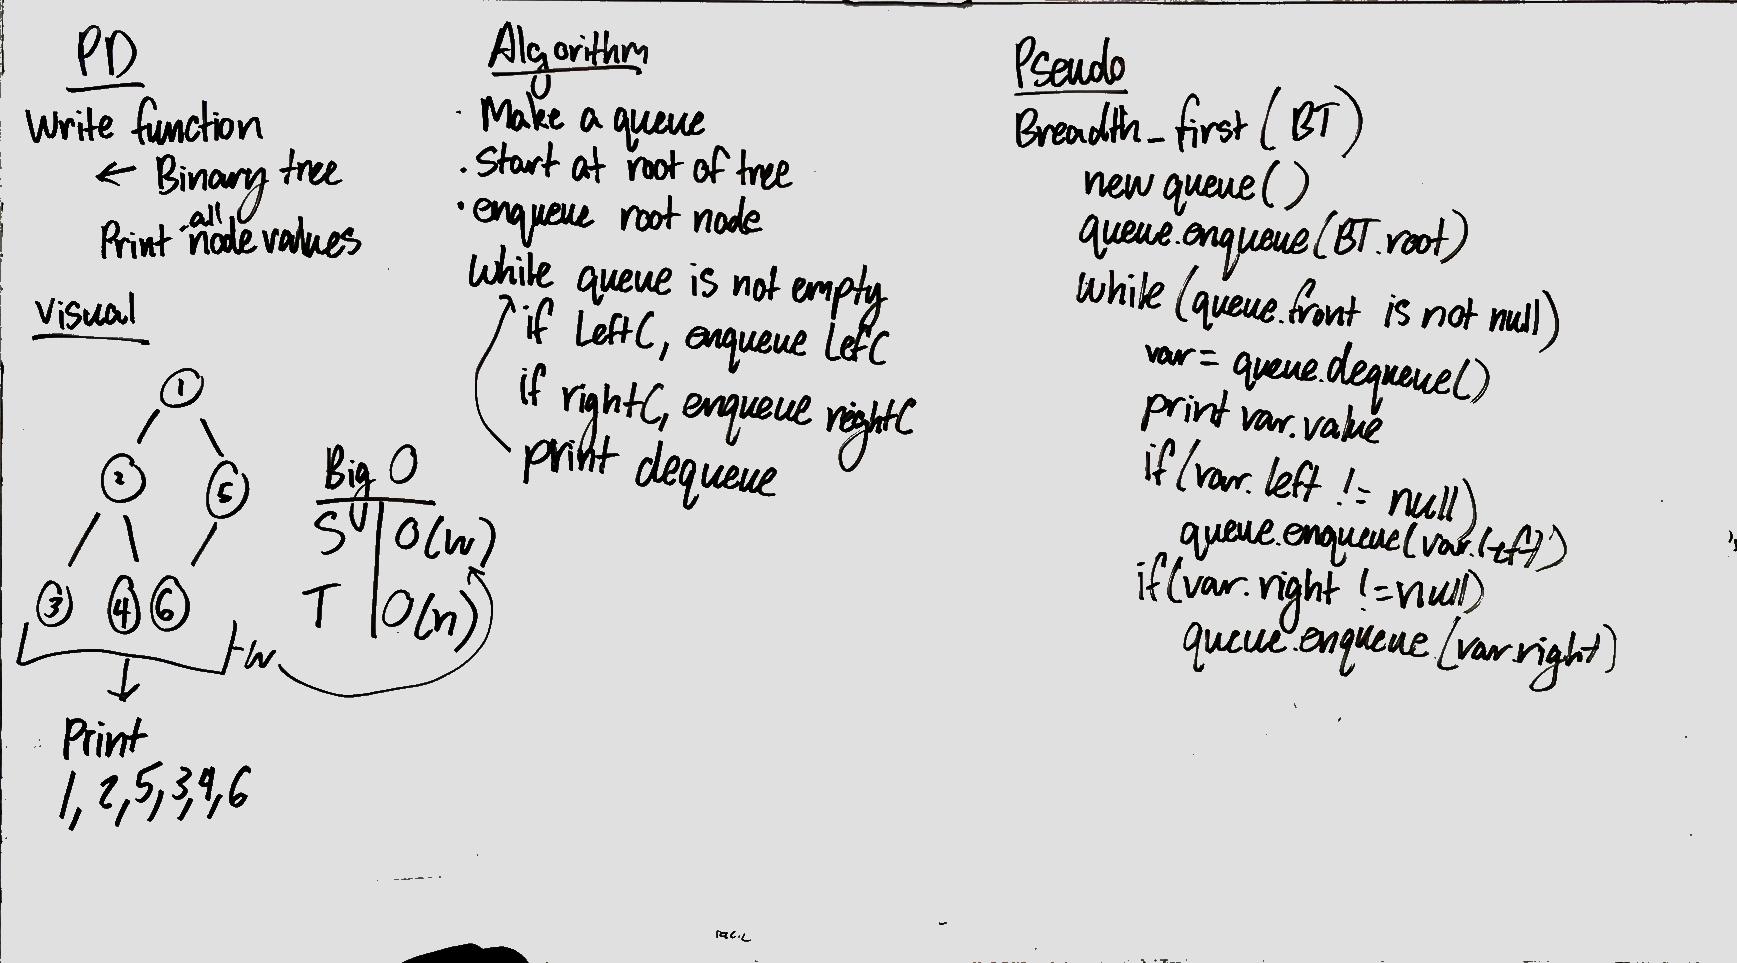 PD
Write function
← Binary tree
Print all node values
Visual
1
2 5
3 4 6
w
Print
1, 2, 5, 3, 4, 6
Big O
S O(w)
T O(n)
Algorithm
· Make a queue
· Start at root of tree
· enqueue root node
While queue is not empty
if LeftC, enqueue LefC
if rightC, enqueue rightC
print dequeue
Pseudo
Breadth_first (BT)
new queue()
queue.enqueue(BT.root)
while (queue.front is not null)
var = queue.dequeue()
print var.value
if (var.left != null)
queue.enqueue(var.left)
if (var.right != null)
queue.enqueue (var.right)